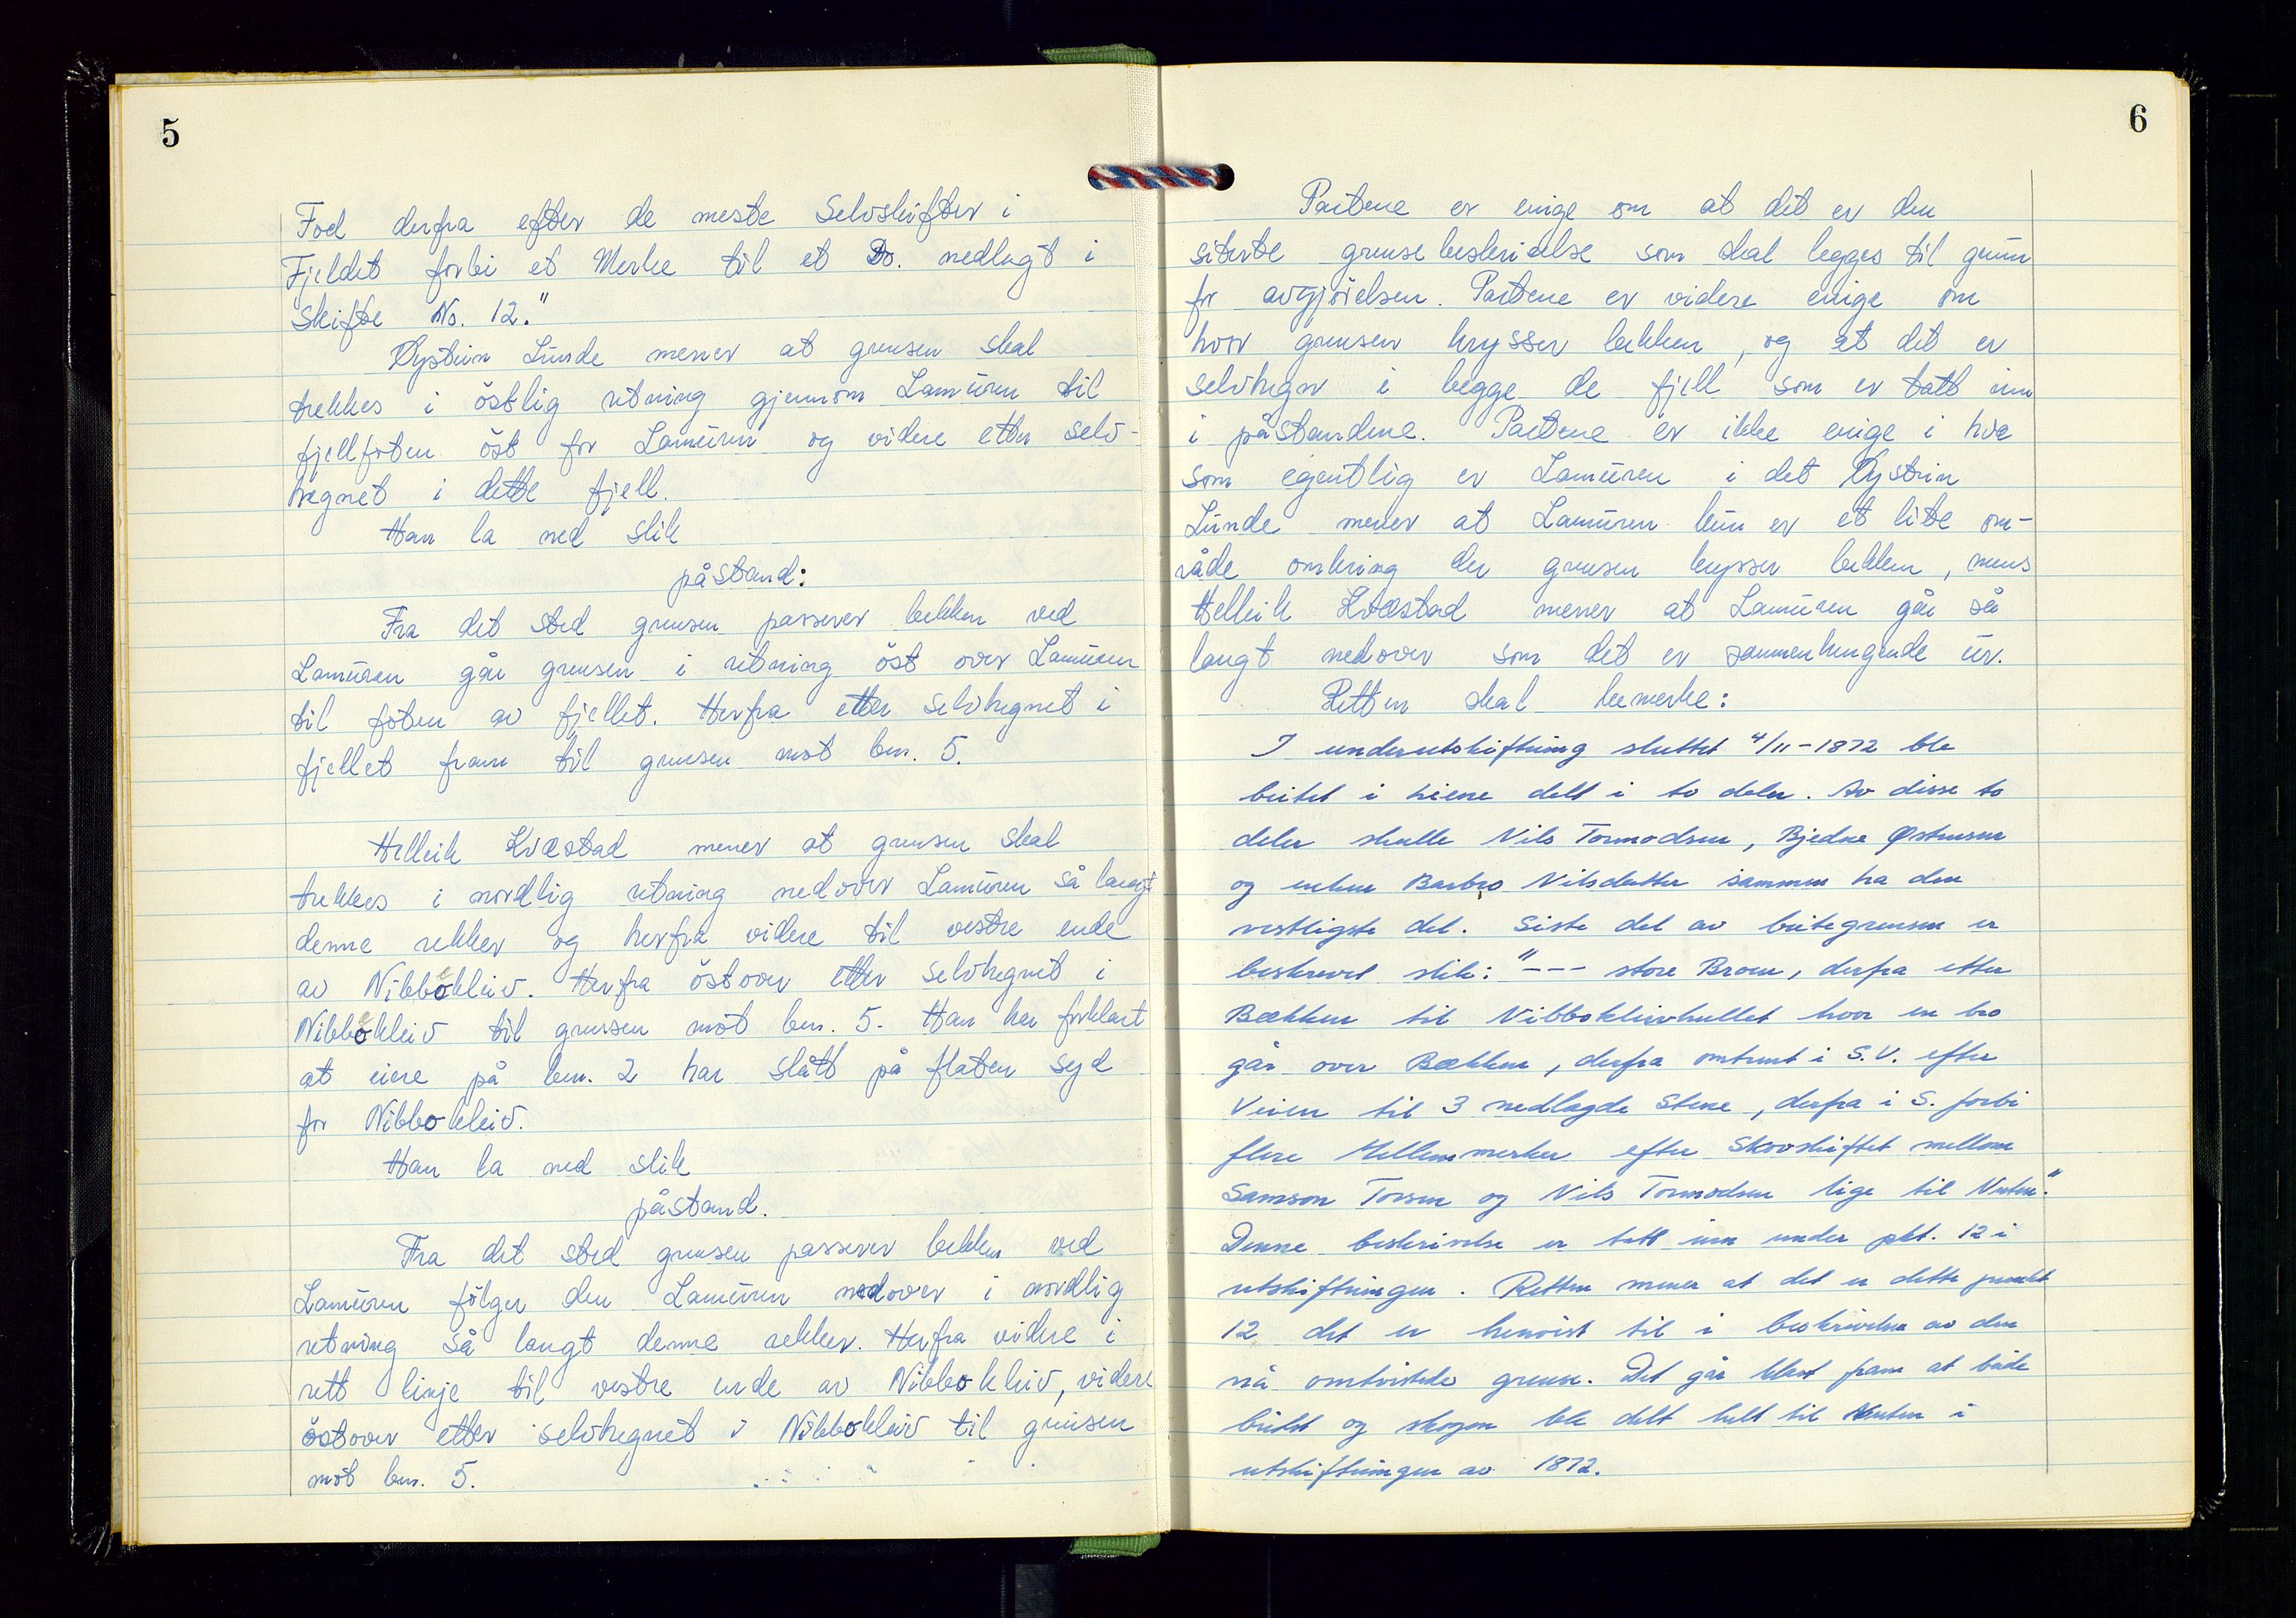 5
Fod derfra efter de meste Selvskifter i
Fjeldet forbi et Merke til et Do. nedlagt i
Skifte No. 12."
Øystein Lunde mener at grensen skal
trekkes i östlig retning gjennom Lamüren til
fjellfoten öst for Lamüren og videre etter selv-
hegnet i dette fjell.
Han la ned slik
påstand:
Fra det sted grensen passerer bekken ved
Lamüren går grensen i retning öst over Lamüren
til foten av fjellet. Herfra etter selvhegnet i
fjellet fram til grensen mot bnr. 5.
Helleik Kvæstad mener at grensen skal
trekkes i nordlig retning nedover Lamüren så langt
denne rekker og herfra videre til vestre ende
av Nibbekleiv. Herfra östover etter selvhegnet i
Nibbekleiv til grensen mot bnr. 5. Han har forklart
at eiere på bnr. 2 har slått på flaten syd
for Nibbokleiv.
Han la ned slik
påstand.
Fra det sted grensen passerer bekken ved
Lamüren fölger den Lamüren nedover i nordlig
retning så langt denne rekker. Herfra videre i
rett linje til vestre ende av Nibbokleiv, videre
östover etter selvhegnet i Nibbokleiv til grensen
mot bnr. 5.
6
Partene er enige om at det er den
siterte grensebeskrivelse som skal legges til grunn
for avgjörelsen. Partene er videre enige om
hvor grensen krysser bekken, og at det er
selvhegn i begge de fjell som er tatt inn
i påstandene. Partene er ikke enige i hva
som egentlig er Lamüren i det Øystein
Lunde mener at Lamüren kun er et lite om-
råde omkring der grensen krysser bekken, mens
Helleik Kvæstad mener at Lamüren går så
langt nedover som det er sammenhengende ür.
Retten skal bemerke:
I underutskiftning sluttet 4/11-1872 ble
beitet i heiene delt i to deler. Av disse to
deler skulle Nils Tormodsen, Bjedne Østensen
og enken Barbro Nilsdatter sammen ha den
vestligste del. Siste del av beitegrensen er
beskrevet slik: "--- store Broen, derfra etter
Bækken til Nibbokleivhullet hvor en bro
går over Bækken, derfra omtrent i S.V. efter
Veien til 3 nedlagde Stene, derfra i S. forbi
flere Mellemmerker efter Skovskiftet mellem
Samson Torsen og Nils Tormodsen lige til Nuten".
Denne beskrivelse er tatt inn under pkt. 12 i
utskiftningen. Retten mener at det er dette punkt
12 det er henvist til i beskrivelsen av den
nå omtvistede grense. Det går klart fram at både
beitet og skogen ble delt helt til Nuten i
utskiftningen av 1872.